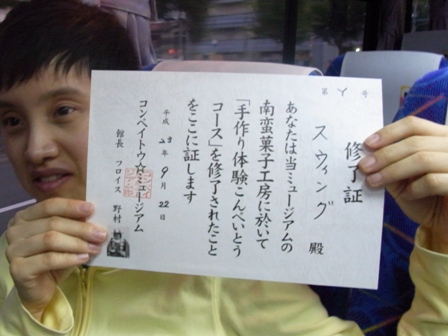 第 Y 号
修了証
スウィング 殿
あなたは当ミュージアムの
南蛮菓子工房に於いて
「手作り体験こんぺいとう
コース」を修了されたこと
をここに証します
平成 23 年 9 月 22 日
コンペイトウミュージアム
館長 フロイス 野村